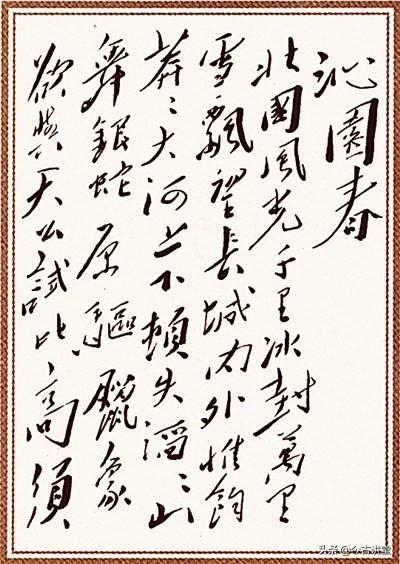 沁園春
北國風光千里冰封萬里
雪飄望長城內外惟餘
莽々大河上下頓失滔々山
舞銀蛇原驅臘象
欲與天公試比高須
头条@今古讲堂